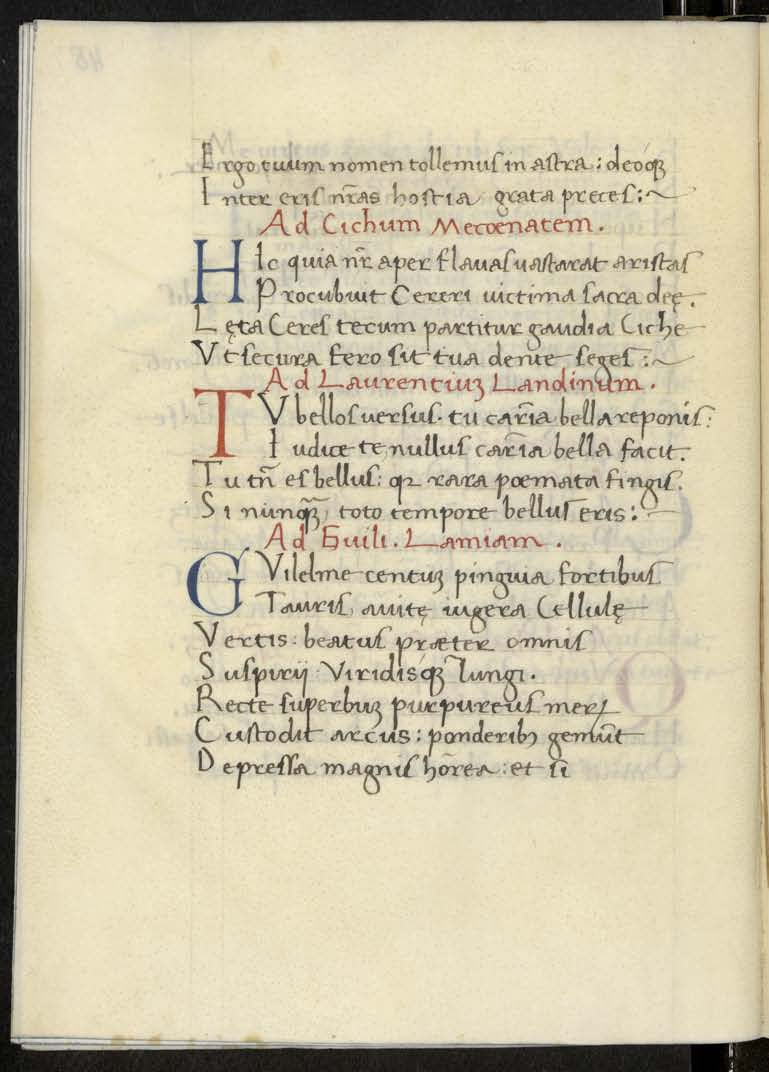 Ergo tuum nomen tollemus in astra: deosq́ꝫ
Inter eris nr̃as hostia grata preces:~
Ad Cichum Mecoenatem.
HIc quia nr̃ aper flauas uastarat aristas
Procubuit Cereri uictima sacra deę.
Lęta Ceres tecum partitur gaudia Ciche
Vt secura fero sit tua dente seges:~
Ad Laurentiuꝫ Landinum.
TV bellos uersus. tu carĩa bella reponis:
Iudice te nullus carĩa bella facit.
Tu tñ es bellus: qꝛ rara poemata fingis.
Si nunq̃ꝫ toto tempore bellus eris:
Ad Guili. Lamiam.
GVilelme centuꝫ pinguia fortibus
Tauris, auitę iugera Cellulę
Vertis: beatus præter omnis
Suspirij Viridisq́ꝫ Iungi.
Recte superbuꝫ purpureus merꝫ
Custodit arcus: ponderibꝫ gemũt
Depressa magnis hõrea: et sĩ
48